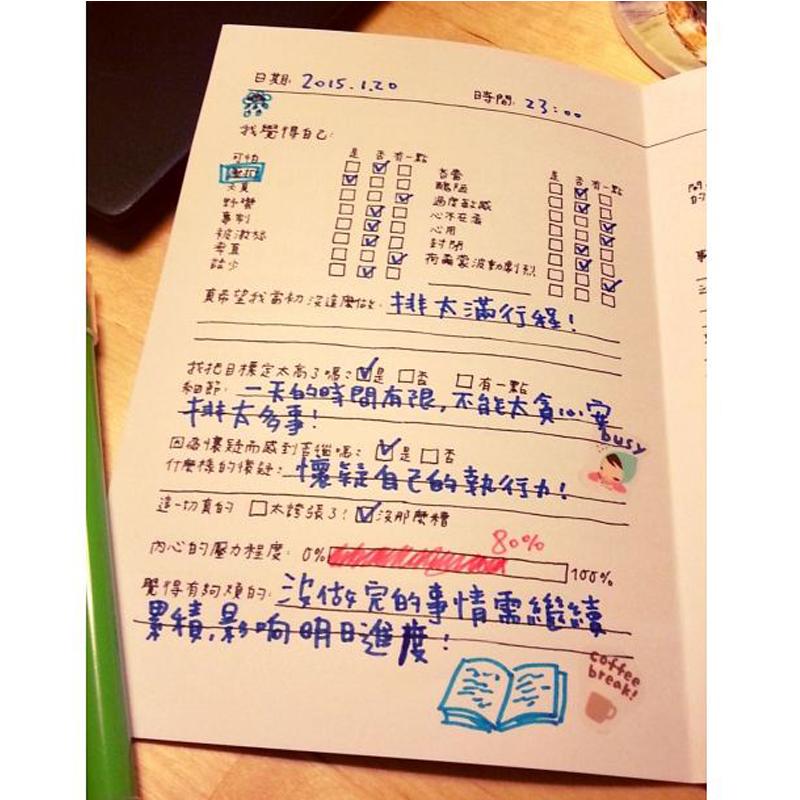 日期: 2015.1.20
時間: 23:00
我覺得自己:
是 否 有一點
可怕
失真
野蠻
專制
被激怒
零散
是 否 有一點
醜陋
過度敏感
心不在焉
心用
封閉
荷爾蒙波動劇烈
真希望我當初沒這麼做: 排太滿行程!
我把目標定太高了嗎? 是 否 有一點
細節: 一天的時間有限,不能太貪心
排太多事!
busy
因為懷疑而感到苦惱嗎? 是 否
什麼樣的懷疑: 懷疑自己的執行力!
這一切真的 太誇張了! 沒那麼糟
80%
內心的壓力程度: 0% 100%
覺得有夠煩的: 沒做完的事情需繼續
累積,影響明日進度!
coffee
break!